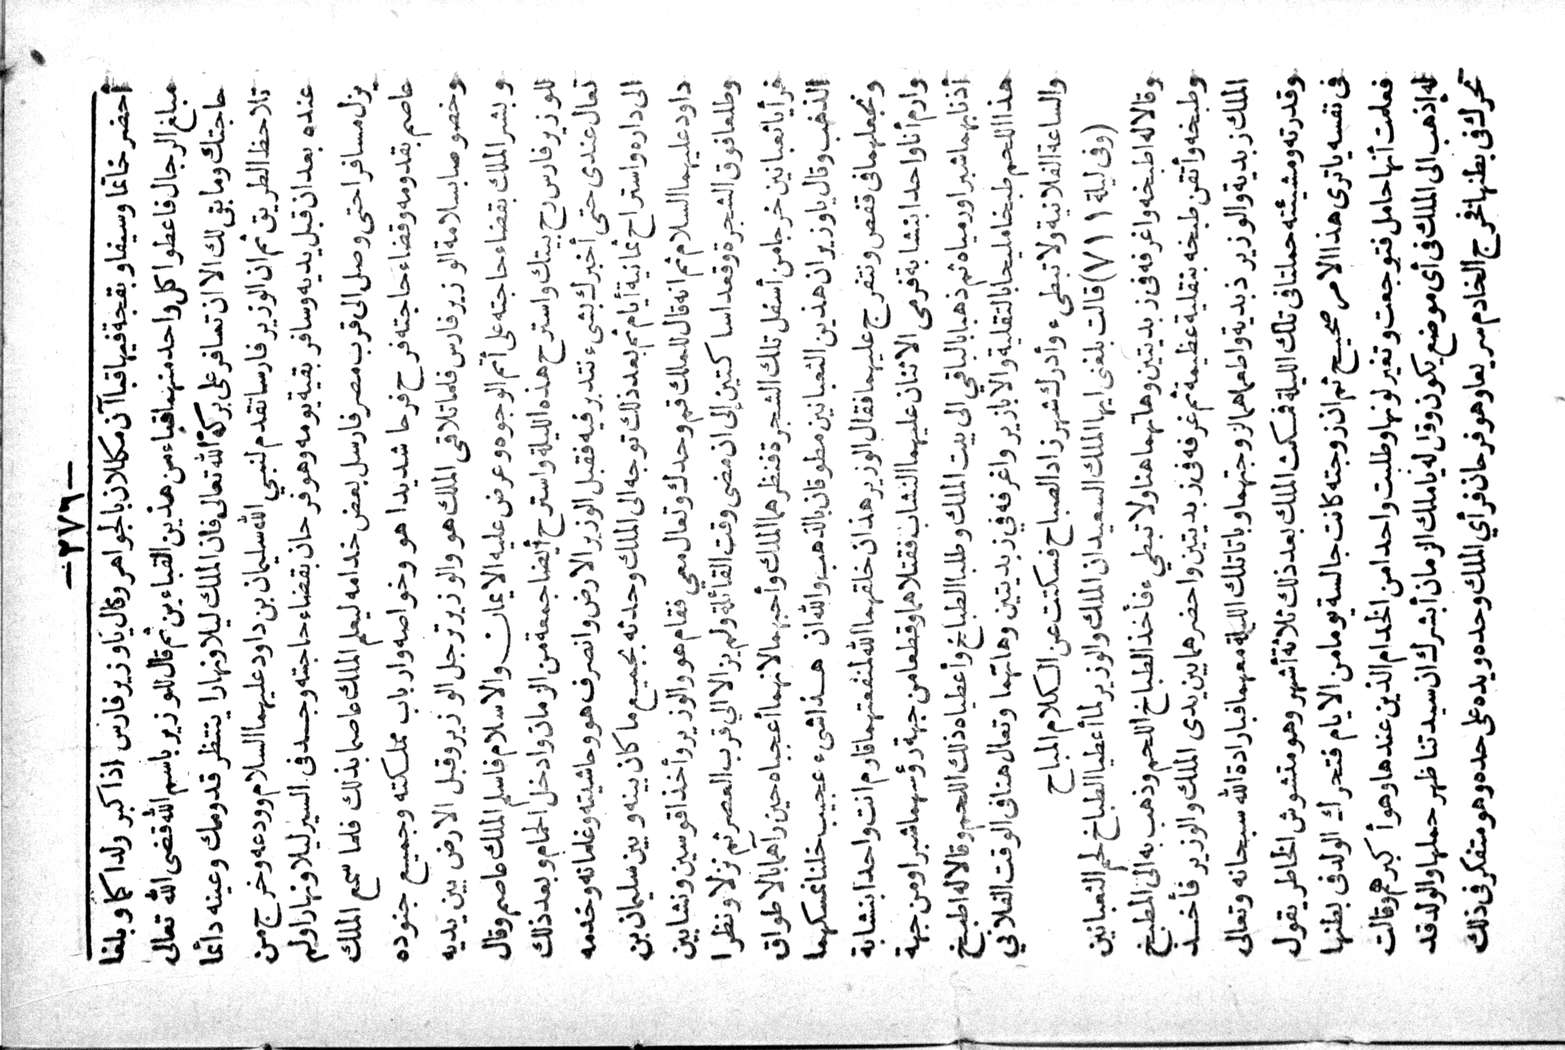 — ٢٧٦ —
أحضر خاتما وسيفا وبقجة فيها قباآن مكللان بالجواهر وقال ياوزير فارس اذا كبر ولدا كما وبلغا
مبلغ الرجال فاعطوا كل واحد منهما قباء من هذين القباءين ثم قال للوزير باسم الله قضى الله تعالى
حاجتك وما بقى لك الا ان تسافر على بركة الله تعالى فان الملك ليلا ونهارا ينتظر قدومك وعينه دائما
تلاحظ الطريق ثم ان الوزير فارسا تقدم لنبي الله سليمان بن داود عليهما السلام وودعه وخرج من
عنده بعد ان قبل يديه وسافر بقية يومه وهو فرحان بقضاء حاجته وجد في السير ليلا ونهارا ولم
يزل مسافر احتى وصل الى قرب مصر فارسل بعض خدامه ليعلم الملك عاصما بذلك فلما سمع الملك
عاصم بقدومه وقضاء حاجته فرح فرحا شديدا هو وخواصه وارباب مملكته وجميع جنوده
وخصوصا بسلامة الوزير فارس فلما تلاقى الملك هو والوزير ترجل الوزير وقبل الارض بين يديه
وبشر الملك بقضاء حاجته على أتم الوجوه وعرض عليه الايمان والاسلام فاسلم الملك عاصم وقال
للوزير فارس رح بيتك واسترح هذه الليلة واسترح أيضا جمعة من الزمان وادخل الحمام وبعد ذلك
تعال عندى حتى أخبرك بشىء نتدبر فيه فقبل الوزير الارض وانصرف هو وحاشيته وغلمانه وخدمه
الى داره واستراح ثمانية أيام ثم بعد ذلك توجه الى الملك وحدثه بجميع ما كان بينه وبين سليمان بن
داود عليهما السلام ثم انه قال للملك قم وحدك وتعال معى فقام هو والوزير وأخذا قوسين ونشابين
وطلعا فوق الشجرة وقعدا ساكتين إلى ان مضى وقت القائلة ولم يزالا الى قرب العصر ثم نزلا ونظرا
فرأيا ثعبانين خرجا من أسفل تلك الشجرة فنظرهما الملك وأحبهما لانهما أعجباه حين رآهما بالاطواق
الذهب وقال ياوزير ان هذين الثعبانين مطوقان بالذهب والله ان هذا شىء عجيب خلنا نمسكهما
ونجعلهما في قفص ونتفرج عليهما فقال الوزير هذان خلقهما الله لمنفعتهما فارم انت واحدا بنشابة
وارم أنا واحدا بنشابة فرمى الاثنان عليهما النشاب فقتلاهما وقطعا من جهة رؤسهما شبرا ومن جهة
أذنابهما شبرا ورمياه ثم ذهبا بالباقي الى بيت الملك وطلبا الطباخ وأعطياه ذلك اللحم وقالا له اطبخ
هذا اللحم طبخا مليحا بالتقلية والابازير واغرفه في زبديتين وهاتهما وتعال هنا في الوقت الفلاني
والساعة الفلانية ولا تبطىء وأدرك شهر زاد الصباح فسكتت عن الكلام المباح
(وفي ليلة ٧١١) قالت بلغنى ايها الملك السعيد ان الملك والوزير لما أعطيا الطباخ لحم الثعبانين
وقالا له اطبخه واغرفه في زبديتين وهاتهما هنا ولا تبطىء فأخذ الطباخ اللحم وذهب به الى المطبخ
وطبخه وأتقن طبخه بتقلية عظيمة ثم غرفه في زبديتين واحضرهما بين يدى الملك والوزير فأخذ
الملك زبدية والوزير زبدية واطعماهما لزوجتيهما وباتا تلك الليلة معهما فبارادة الله سبحانه وتعالى
وقدرته ومشيئته حملتا في تلك الليلة فمكث الملك بعد ذلك ثلاثة أشهر وهو متشوش الخاطر يقول
في نفسه ياترى هذا الامر صحيح ثم ان زوجته كانت جالسة يوما من الايام فتحرك الولد في بطنها
فعلمت أنها حامل فتوجعت وتغير لونها وطلبت واحدا من الخدام الذين عندها وهو أكبرهم وقالت
له إذهب الى الملك في أى موضع يكون وقل له ياملك الزمان أبشرك ان سيدتنا ظهر حملها والولد قد
تحرك في بطنها فخرج الخادم سريعا وهو فرحان فرأي الملك وحده ويده على خده وهو متفكر في ذلك